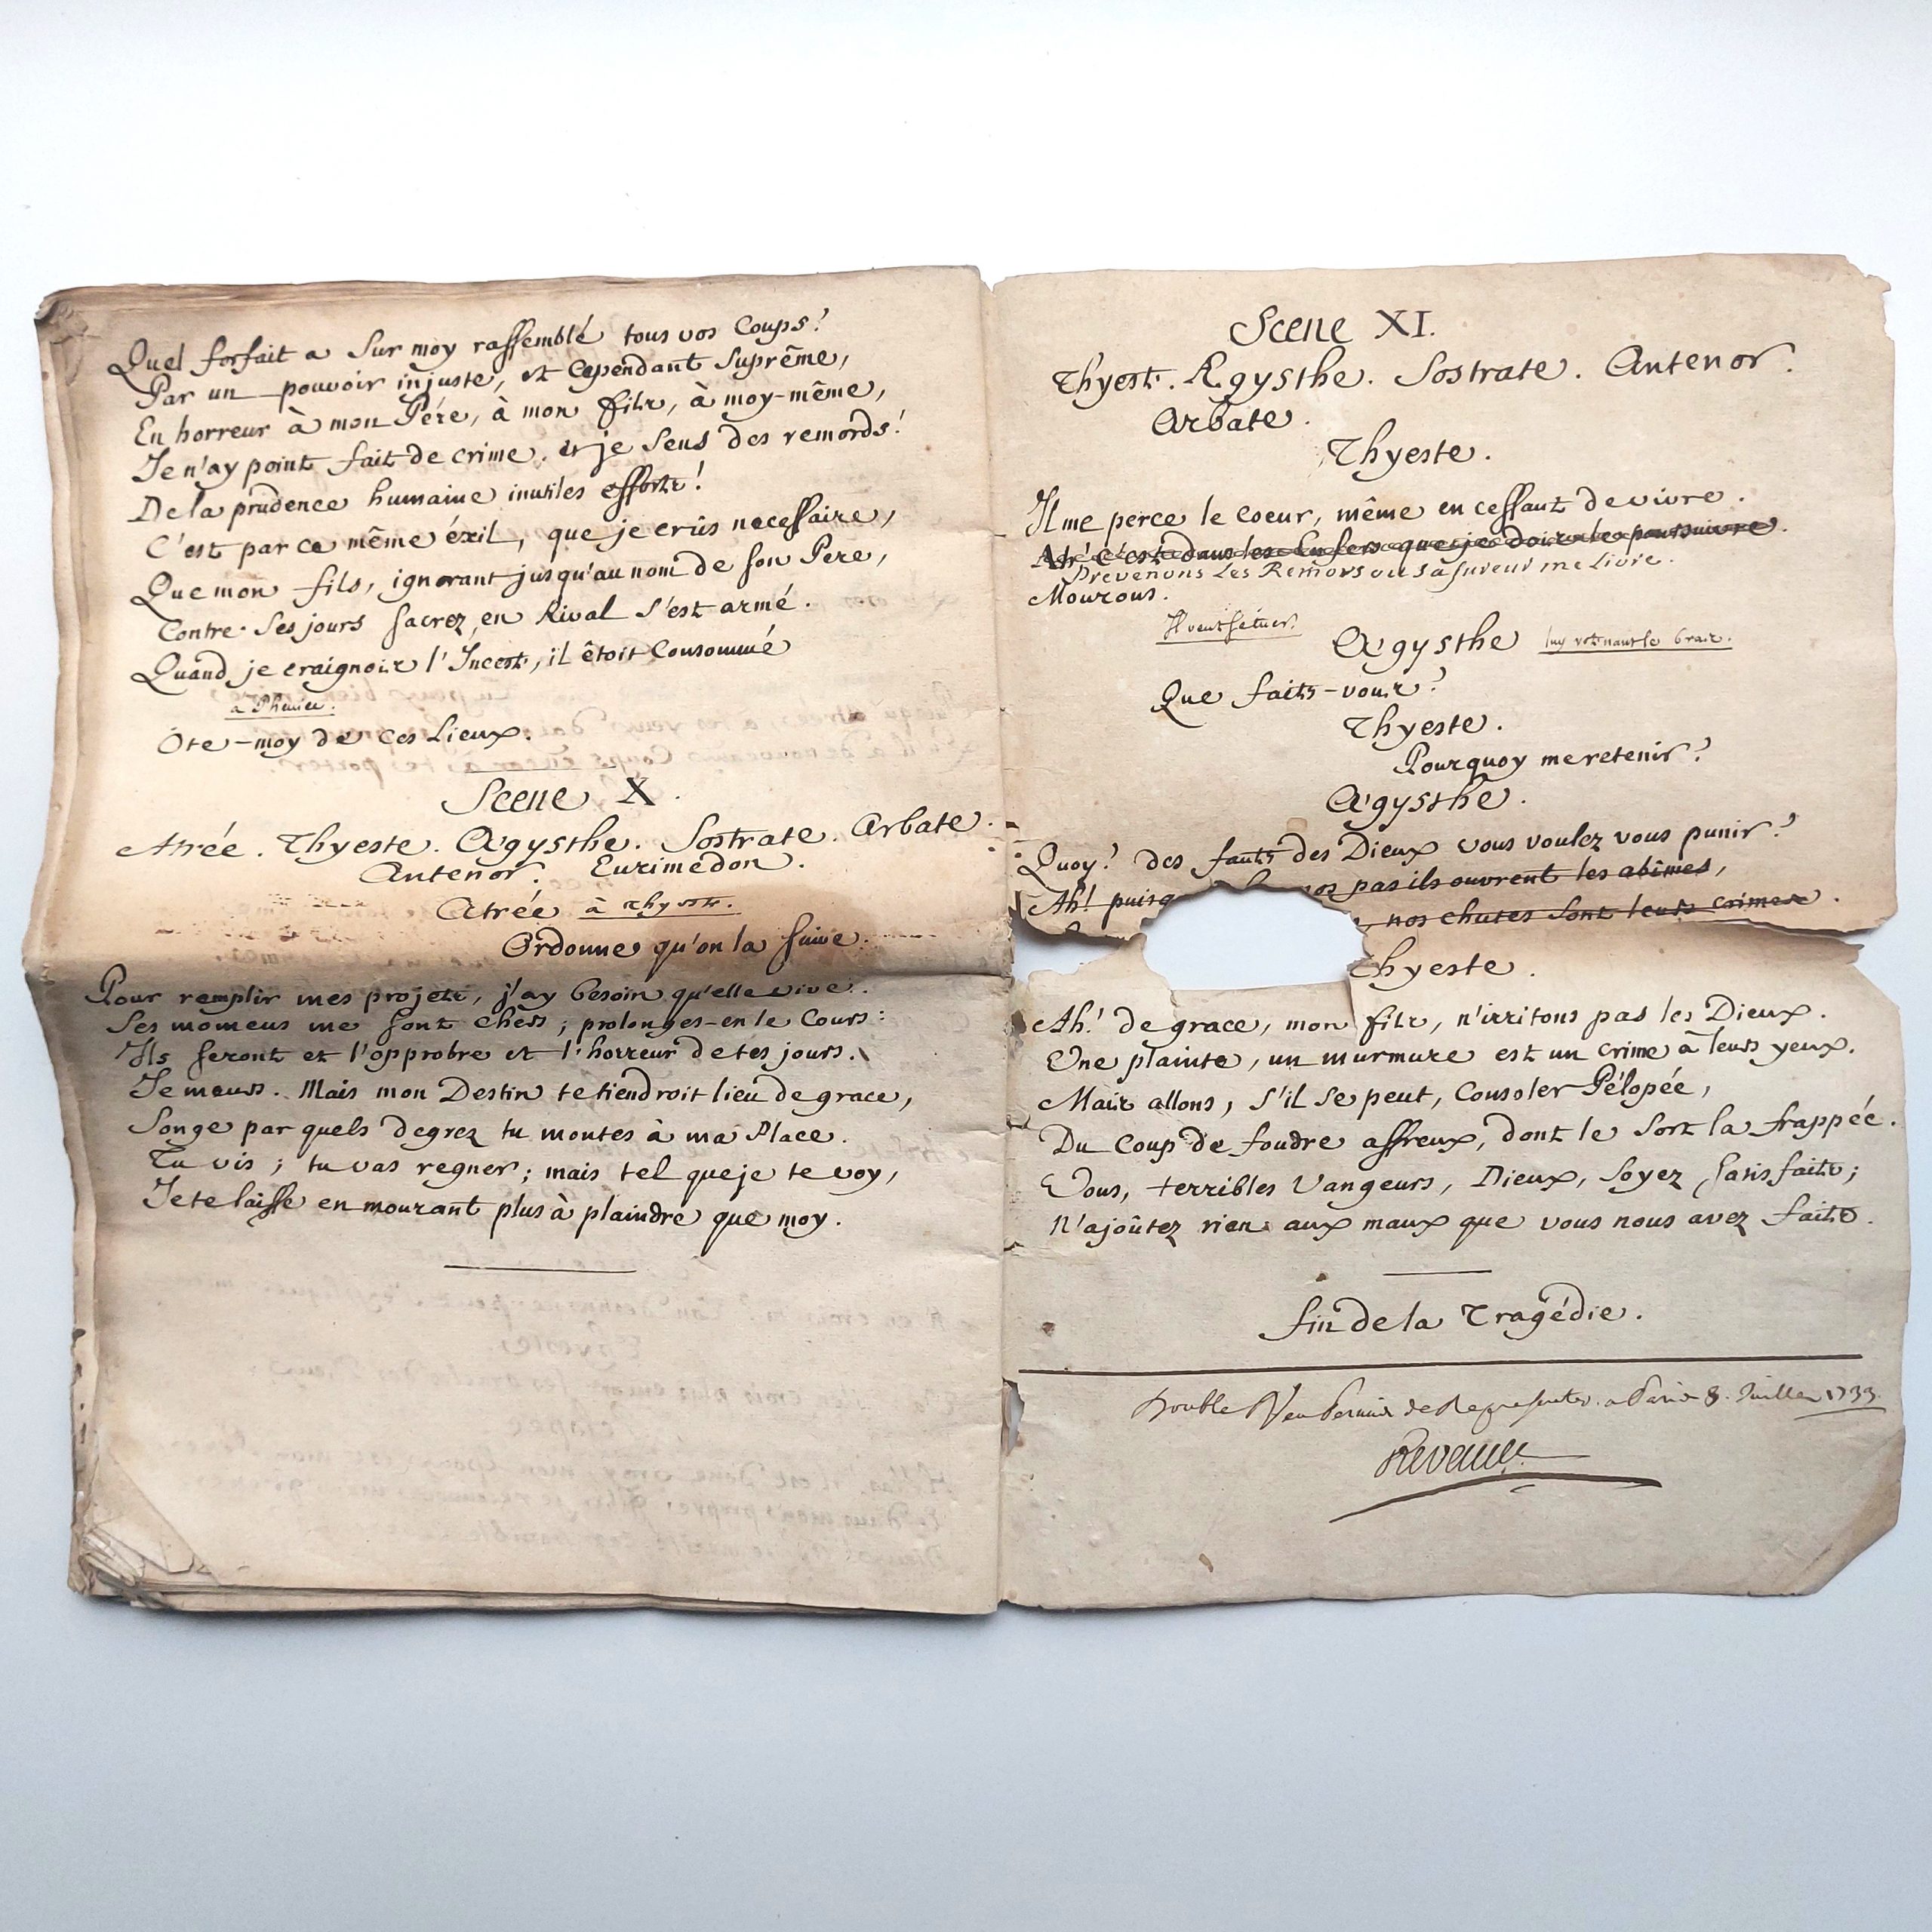 Quel forfait a Sur moy rassemblé tous vos Coups?
Par un pouvoir injuste, et Cependant Suprême,
En horreur à mon Pére, à mon fils, à moy-même,
Je n'ay point fait de crime, et je Sens des remords!
De la prudence humaine inutiles efforts!
C'est par ce même éxil, que je crûs necessaire,
Que mon fils, ignorant jusqu'au nom de son Pere,
Contre Ses jours sacrez, en Rival s'est armé.
Quand je craignois l'Inceste, il êtoit Consommé
à Phenice.
Ôte-moy de ces Lieux.
Scene X.
Atrée. Thyeste. Ægysthe. Sostrate. Arbate.
Antenor. Eurimedon.
Atrée à Thyeste.
Ordonne qu'on la suive.
Pour remplir mes projets, j'ay besoin qu'elle vive.
Ses momens me sont chers; prolonges-en le Cours:
Ils seront et l'opprobre et l'horreur de tes jours.
Je meurs. Mais mon Destin te tiendroit lieu de grace,
Songe par quels degrez tu montes à ma Place.
Tu vis; tu vas regner; mais tel que je te voy,
Je te laisse en mourant plus à plaindre que moy.
Scene XI.
Thyeste. Ægysthe. Sostrate. Antenor.
Arbate.
Thyeste.
Il me perce le coeur, même en cessant de vivre.
Ah! c'est dans les Enfers que je dois le poursuivre.
Prevenons Les Remors ou sa fureur me livre.
Mourons.
Il veut se tuer.
Ægysthe luy retenant le bras.
Que faites-vous?
Thyeste.
Pourquoy me retenir?
Ægysthe.
Quoy! des fautes des Dieux vous voulez vous punir?
Ah! puisq nos pas ils ouvrent les abîmes,
nos chutes sont leurs crimes.
Thyeste.
Ah! de grace, mon fils, n'irritons pas les Dieux.
Une plainte, un murmure est un crime à leurs yeux.
Mais allons, s'il se peut, Consoler Pélopée,
Du Coup de foudre affreux, dont le Sort la frappée.
Vous, terribles Vangeurs, Dieux, Soyez satisfaits;
N'ajoûtez rien aux maux que vous nous avez faits.
fin de la Tragédie.
Double Veu Permis de Representer. a Paris 8. Juillet 1733.